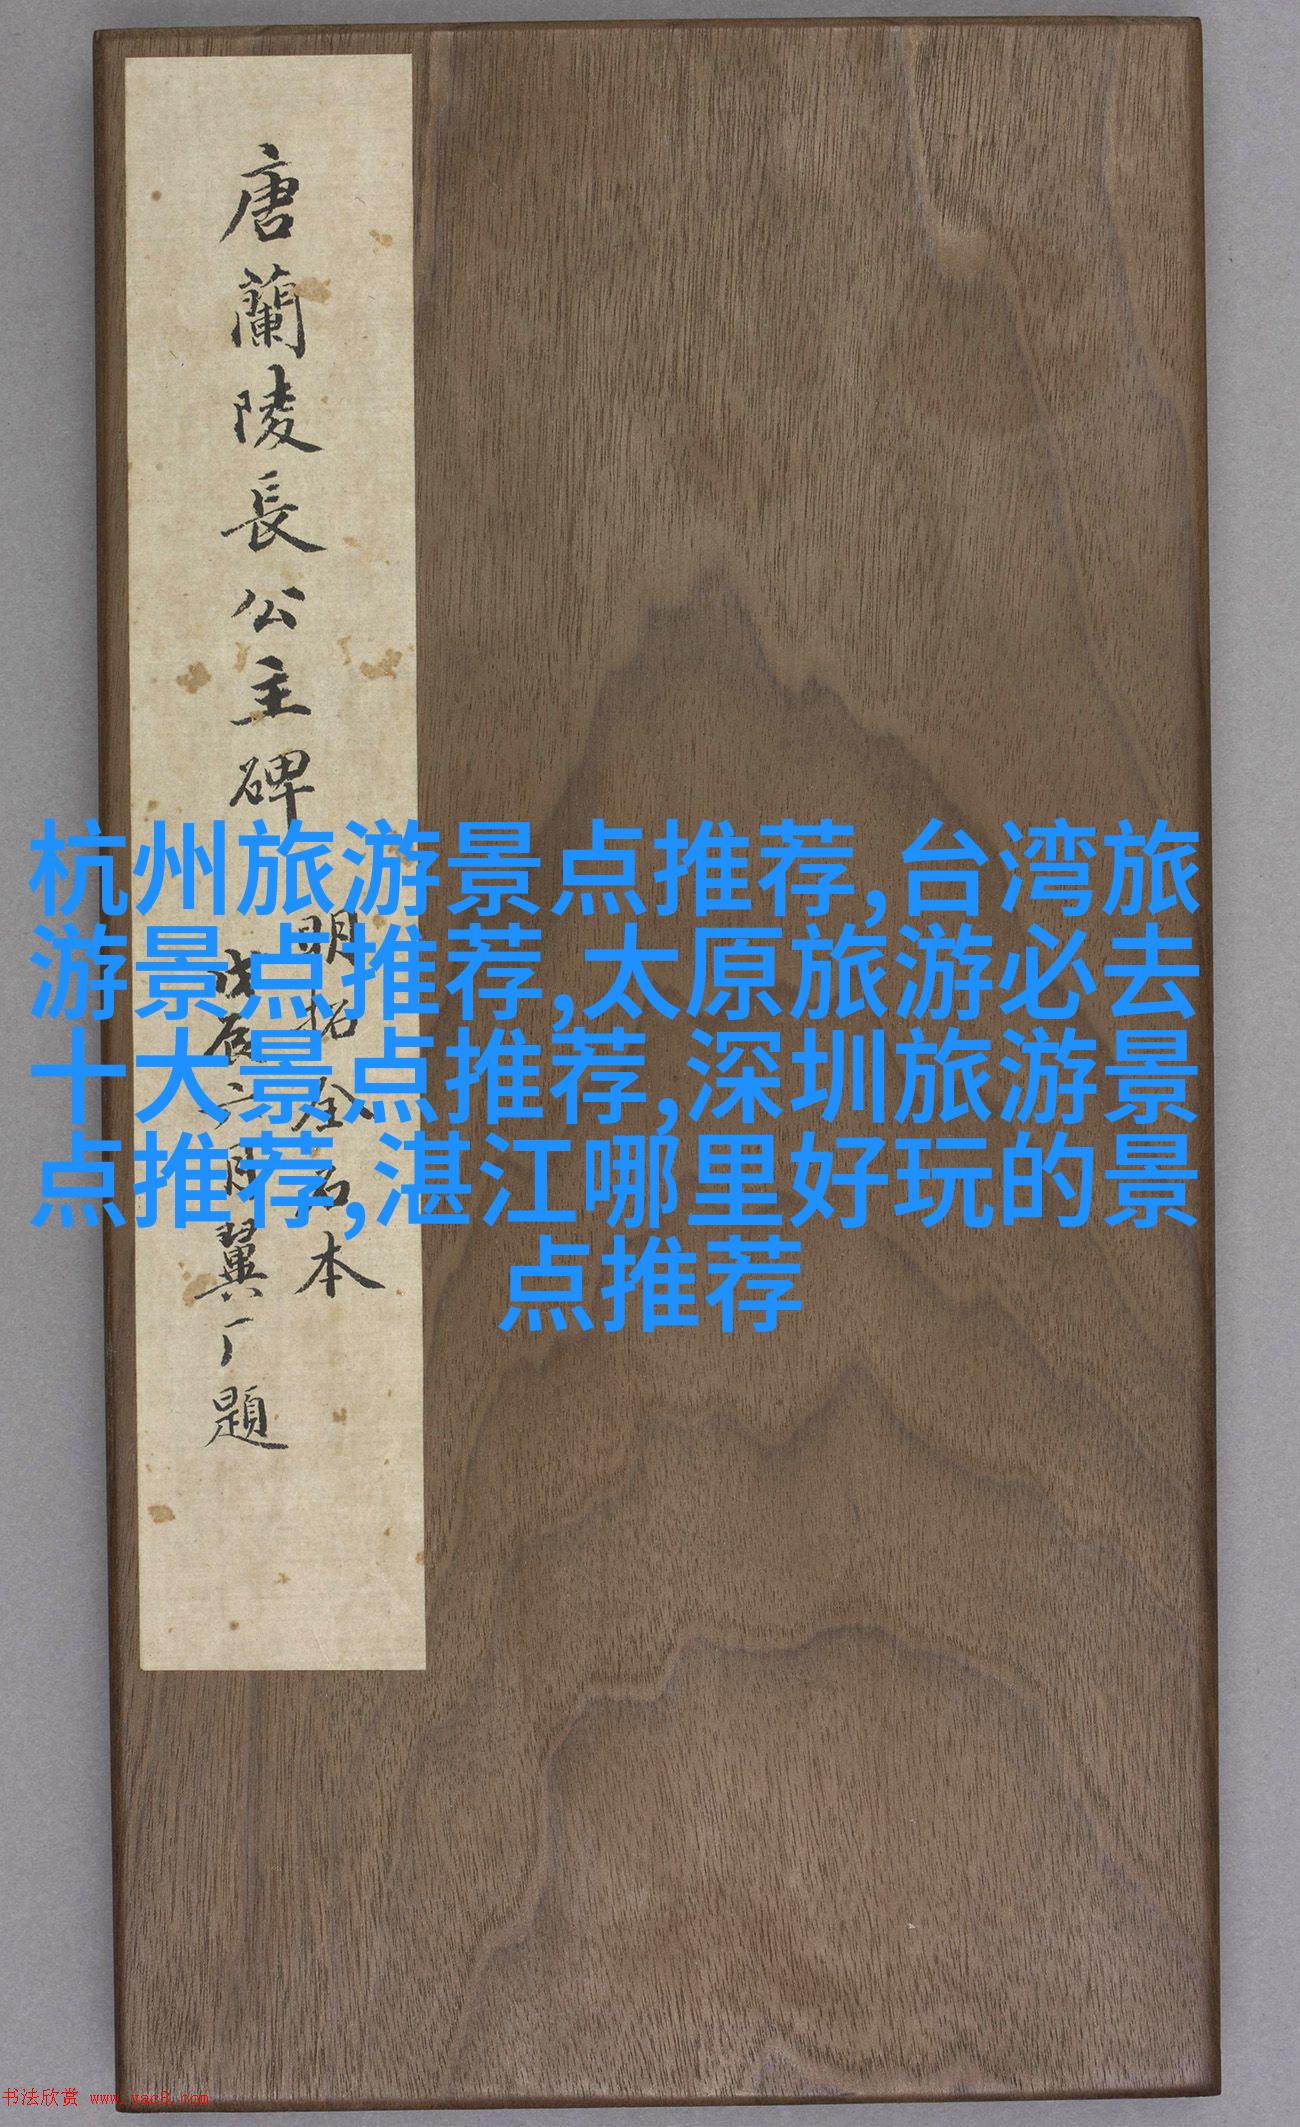 唐蘭陵長公主碑
明拓金石本
戊辰六月翼厂題
杭州旅游景点推荐,台湾旅
游景点推荐,太原旅游必去
十大景点推荐,深圳旅游景
点推荐,湛江哪里好玩的景
点推荐
书法欣赏 www.yac8.com